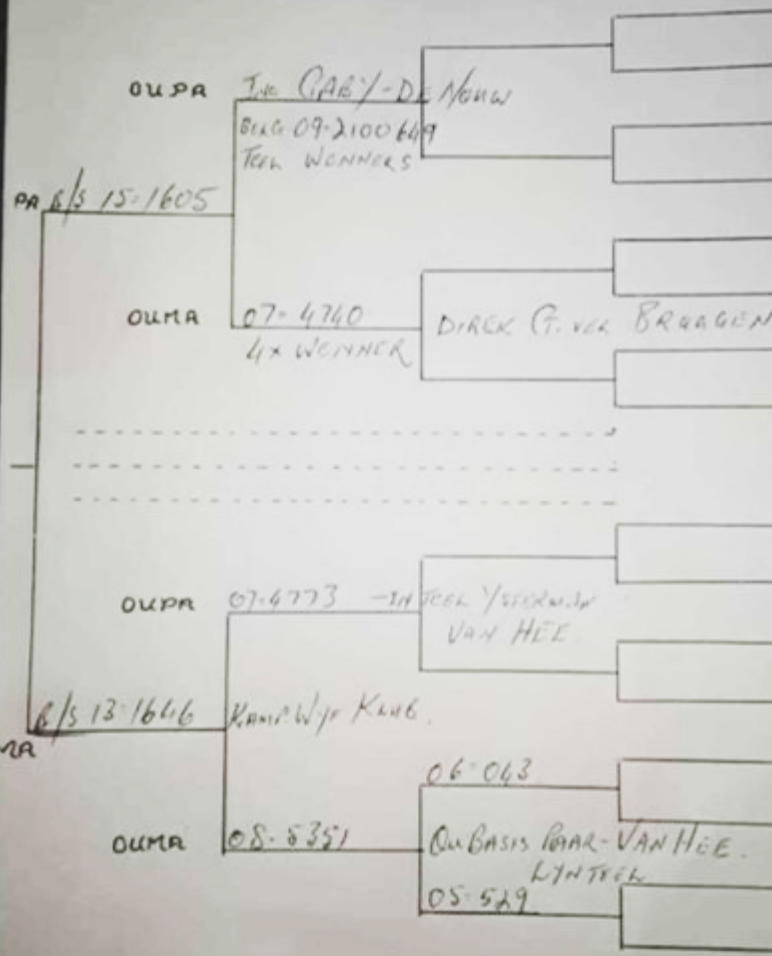 OUPA GABY - DE NOUW
BELG 09-2100649
TEEL WENNERS
PA B/S 15-1605
OUMA 07-4740 DIREK G. VER BRAAGEN
4x WENNER
OUPA 07-4773 - IN TEEL YSTERMAN
VAN HEE
B/S 13-1646 KAMP WYF KLUB.
MA
06-043
OUMA 08-5351 OU BASIS PAAR - VAN HEE.
LYNTEEL
05-529